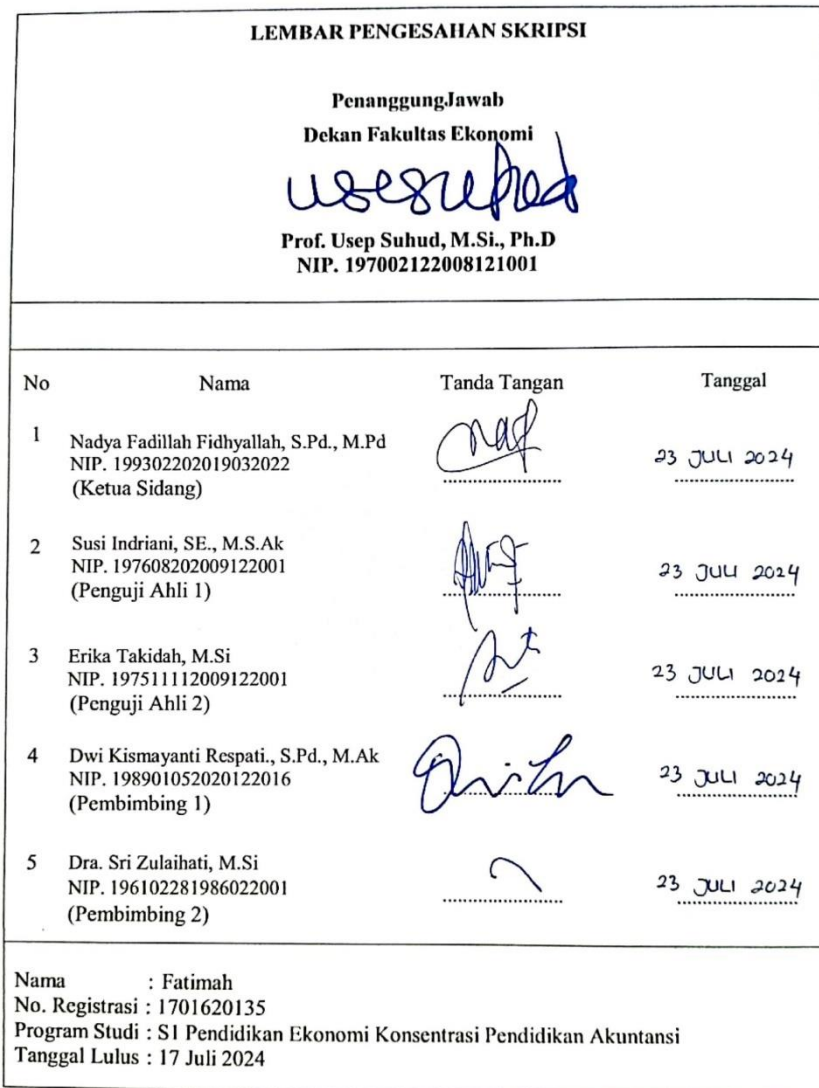 LEMBAR PENGESAHAN SKRIPSI
PenanggungJawab
Dekan Fakultas Ekonomi
Prof. Usep Suhud, M.Si., Ph.D
NIP. 197002122008121001
No Nama Tanda Tangan Tanggal
1 Nadya Fadillah Fidhyallah, S.Pd., M.Pd
NIP. 199302202019032022
(Ketua Sidang)
23 JULI 2024
2 Susi Indriani, SE., M.S.Ak
NIP. 197608202009122001
(Penguji Ahli 1)
23 JULI 2024
3 Erika Takidah, M.Si
NIP. 197511112009122001
(Penguji Ahli 2)
23 JULI 2024
4 Dwi Kismayanti Respati., S.Pd., M.Ak
NIP. 198901052020122016
(Pembimbing 1)
23 JULI 2024
5 Dra. Sri Zulaihati, M.Si
NIP. 196102281986022001
(Pembimbing 2)
23 JULI 2024
Nama : Fatimah
No. Registrasi : 1701620135
Program Studi : S1 Pendidikan Ekonomi Konsentrasi Pendidikan Akuntansi
Tanggal Lulus : 17 Juli 2024